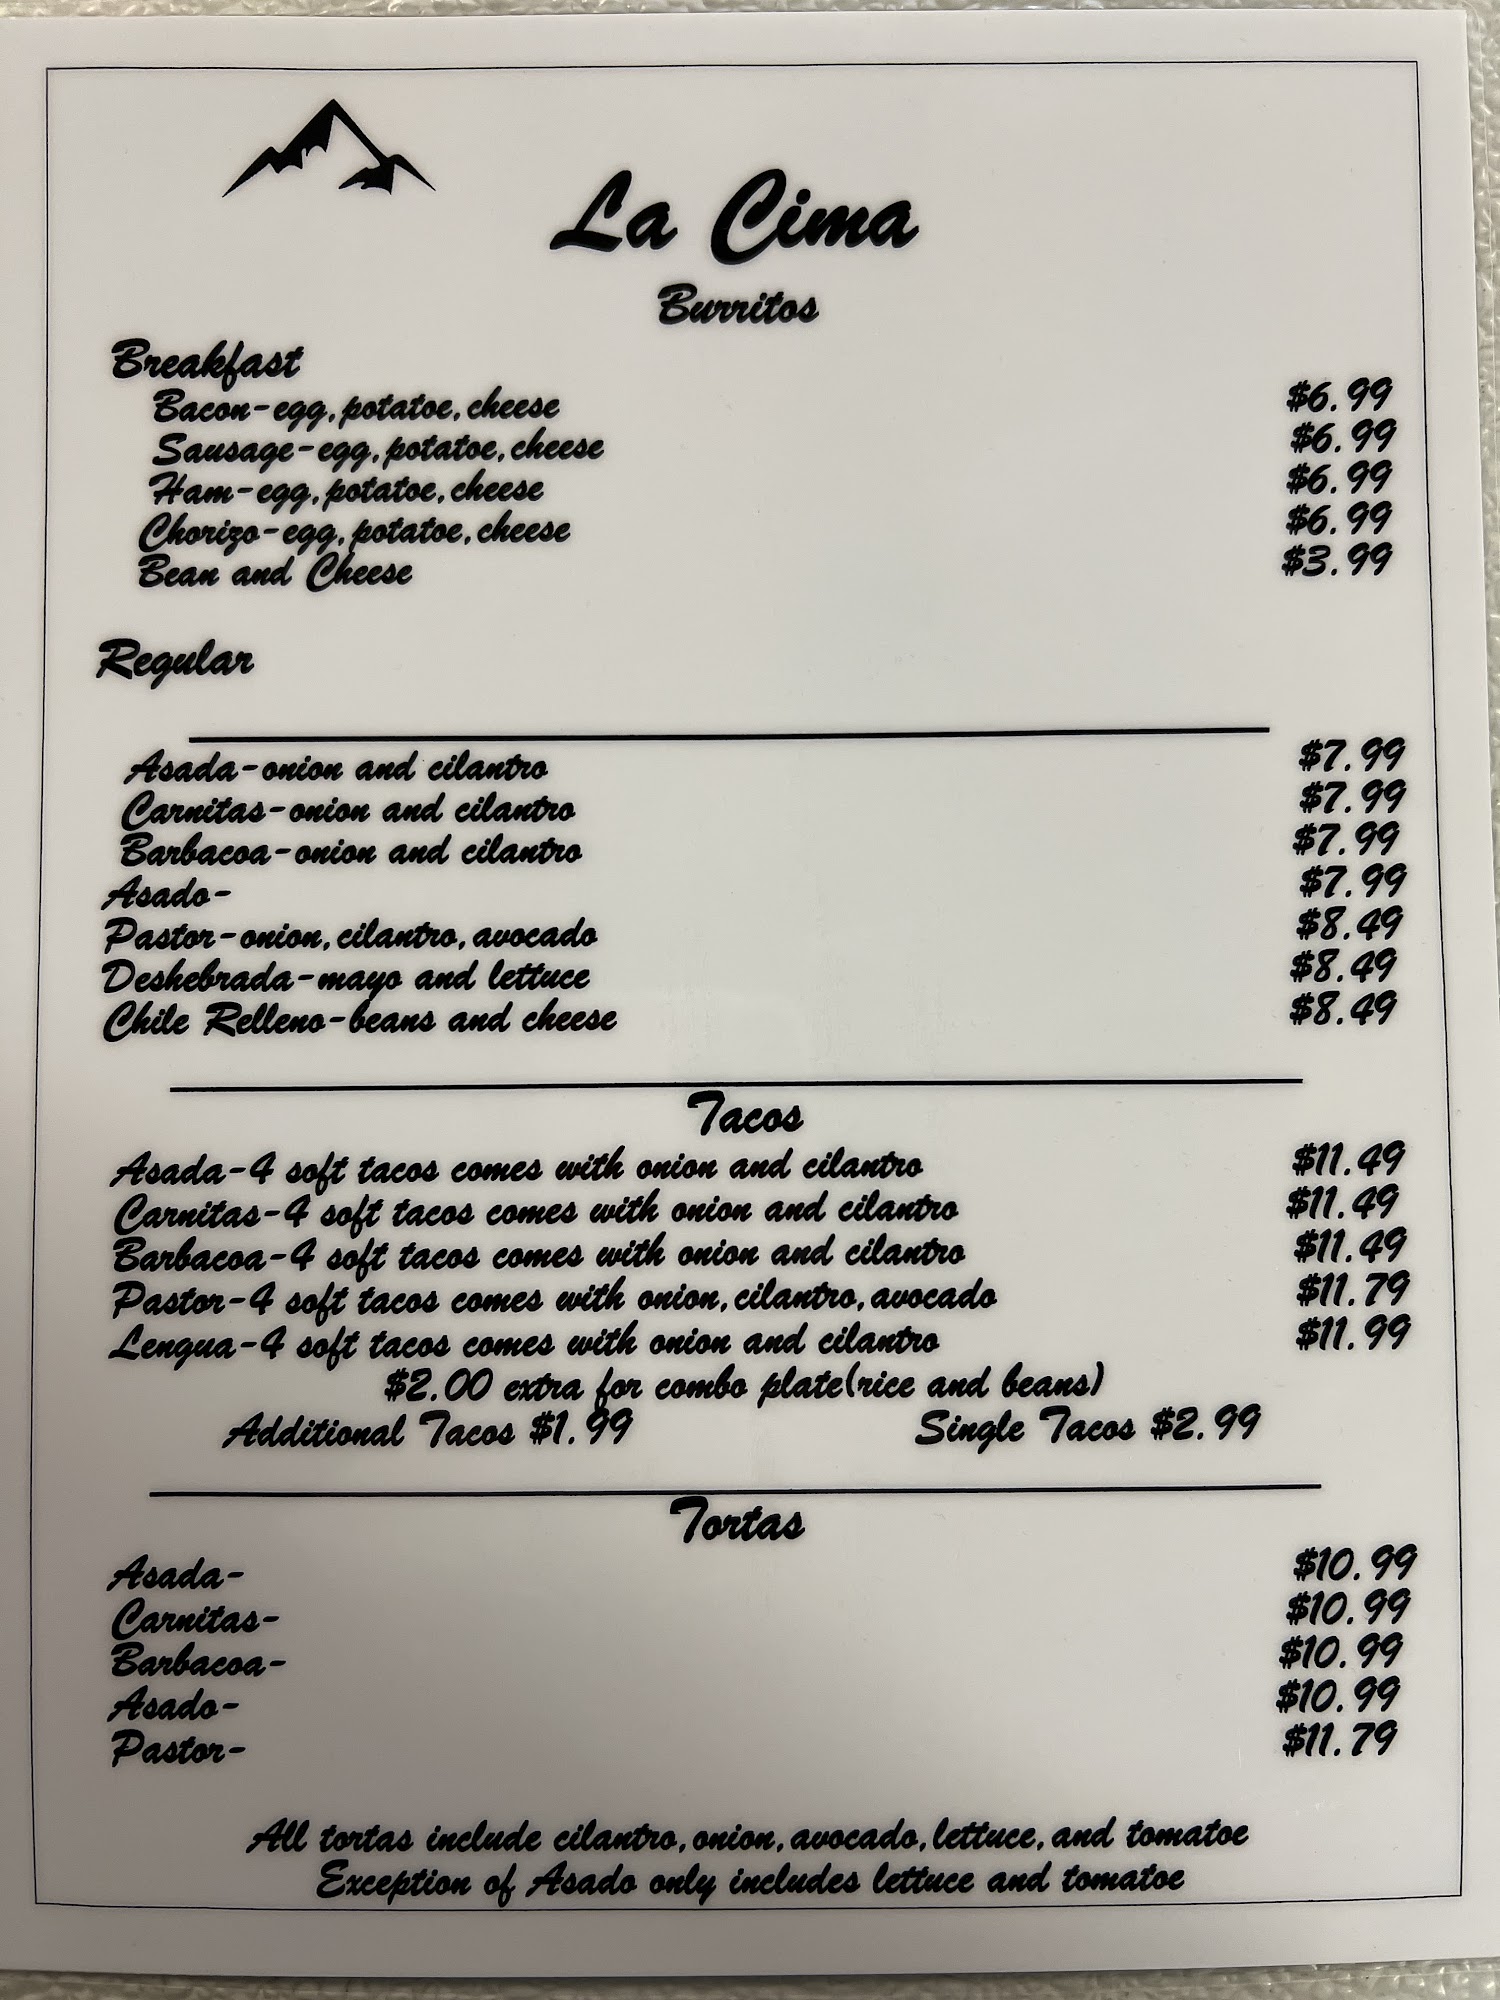 La Cima
Burritos
Breakfast
Bacon-egg,potatoe,cheese $6.99
Sausage-egg,potatoe,cheese $6.99
Ham-egg,potatoe,cheese $6.99
Chorizo-egg,potatoe,cheese $6.99
Bean and Cheese $3.99
Regular
Asada-onion and cilantro $7.99
Carnitas-onion and cilantro $7.99
Barbacoa-onion and cilantro $7.99
Asado- $7.99
Pastor-onion,cilantro,avocado $8.49
Deshebrada-mayo and lettuce $8.49
Chile Relleno-beans and cheese $8.49
Tacos
Asada-4 soft tacos comes with onion and cilantro $11.49
Carnitas-4 soft tacos comes with onion and cilantro $11.49
Barbacoa-4 soft tacos comes with onion and cilantro $11.49
Pastor-4 soft tacos comes with onion,cilantro,avocado $11.79
Lengua-4 soft tacos comes with onion and cilantro $11.99
$2.00 extra for combo plate(rice and beans)
Additional Tacos $1.99 Single Tacos $2.99
Tortas
Asada- $10.99
Carnitas- $10.99
Barbacoa- $10.99
Asado- $10.99
Pastor- $11.79
All tortas include cilantro,onion,avocado,lettuce,and tomatoe
Exception of Asado only includes lettuce and tomatoe